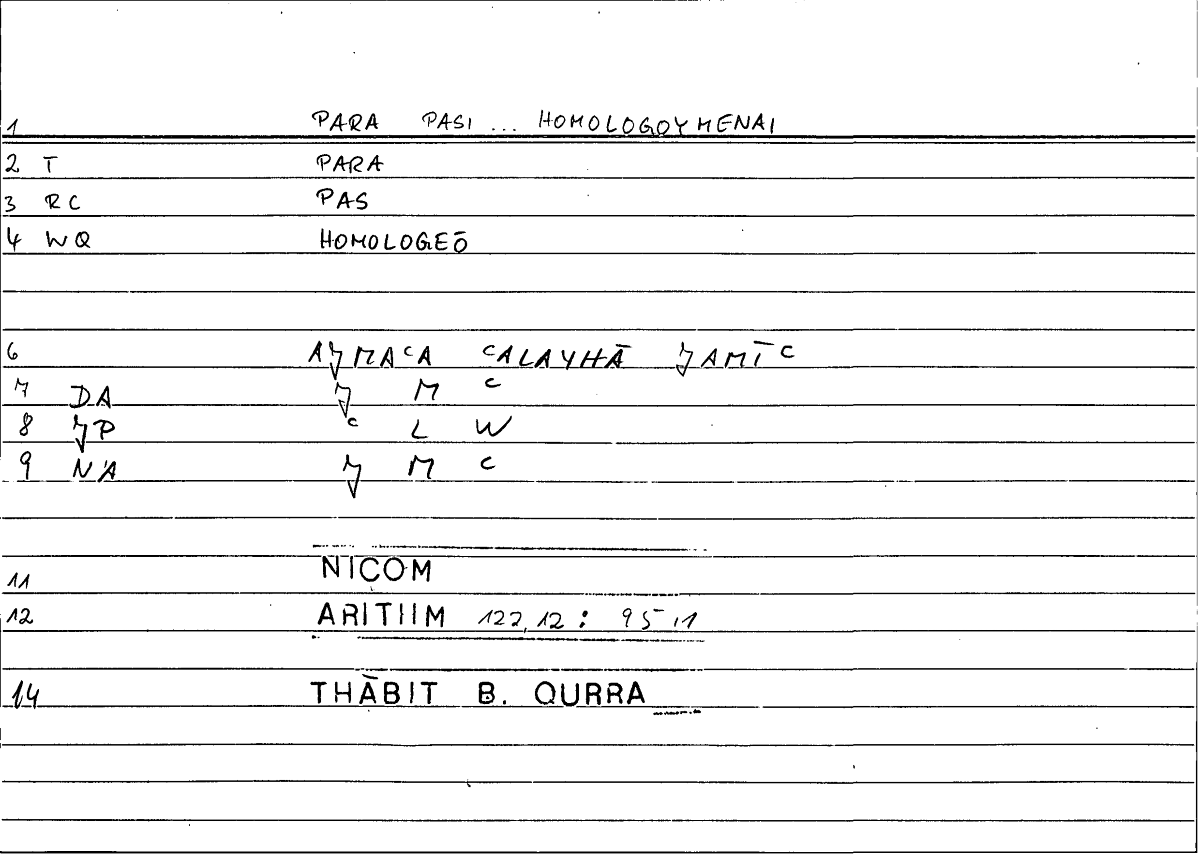 1 PARA PASI ... HOMOLOGOYMENAI
2 T PARA
3 RC PAS
4 WQ HOMOLOGEŌ
6 AJMAᶜA ᶜALAYHĀ JAMĪᶜ
7 DA J M ᶜ
8 JP ᶜ L W
9 NA J M ᶜ
11 NICOM
12 ARITHM 122,12 : 95,1
14 THĀBIT B. QURRA